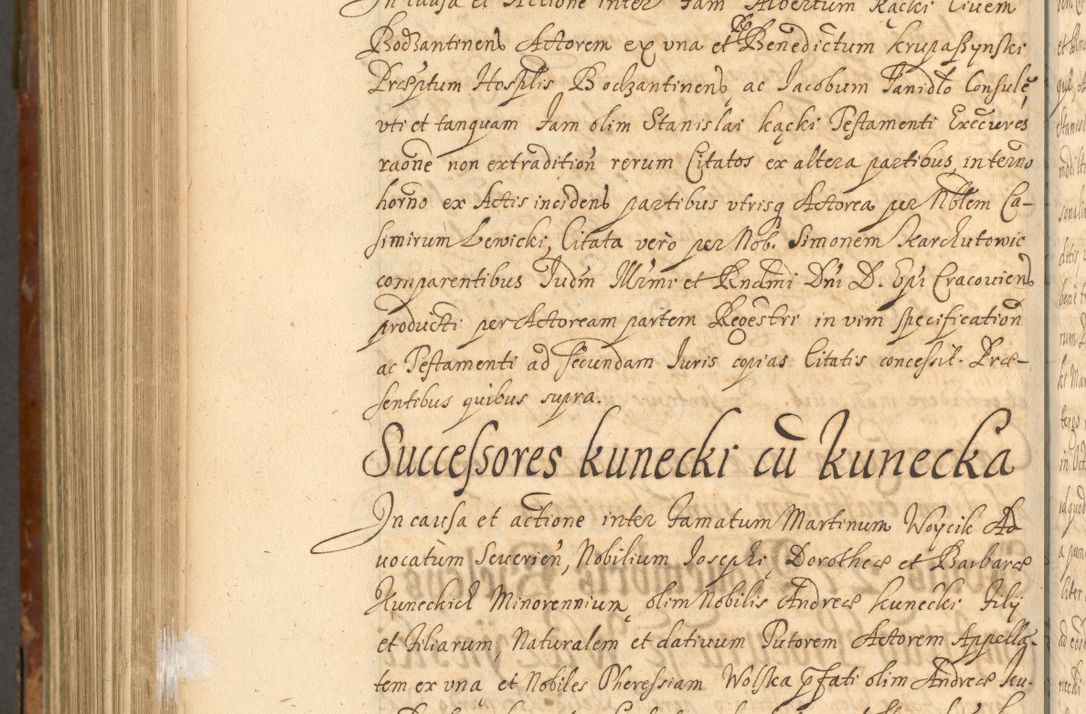 In causa et Actione inter Fam Albertum Kącki Civem
Bodzantinens Actorem ex vna et Benedictum Krupaszynski
Præptum Hosplis Bodzantinens ac Jacobum Tanidło Consulẽ
vti et tanquam Fam olim Stanislai kącki Testamenti Execures
raone non extradition rerum Citatos ex altera partibus in termo
horno ex Actis incidens partibus vtrisq Actorea per Nblem Ca-
simirum Lewicki, Citata vero per Nob. Simonem Karchutowic
comparentibus Judm Illrmi et Rndmi Dni D. Epi Cracoviens
producti per Actoream partem Regestri in vim specification
ac Testamenti ad secundam Juris copias Citatis concessit. Præ-
sentibus quibus supra.
Successores kunecki cũ kunecka
In causa et actione inter Famatum Martinum Woycik Ad
uocatum Seuerien, Nobilium Josephi, Dorotheæ et Barbaræ
Kuneckich Minorennium olim Nobilis Andreæ kunecki Filij
et Filiarum, Naturalem et datiuum Tutorem Actorem Appella-
tem ex vna et Nobiles Theressiam Wolska pfati olim Andreæ ku-